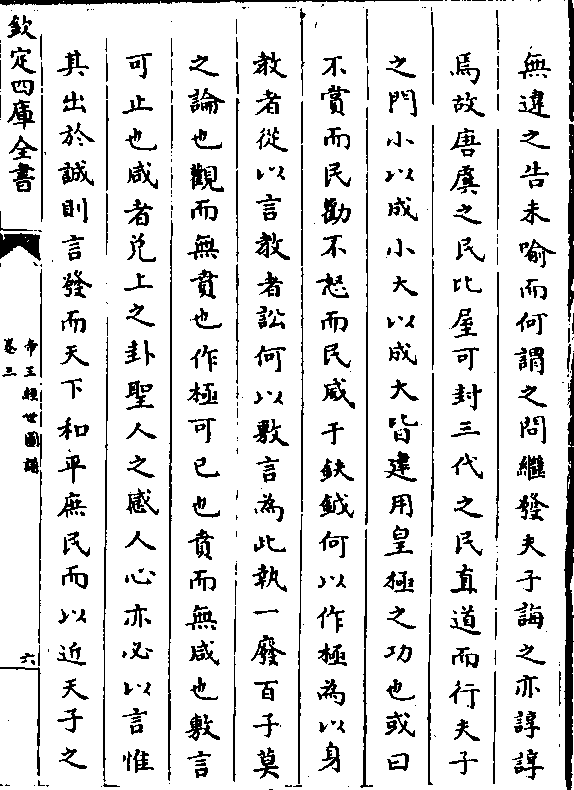 無違之告未喻而何謂之問繼發夫子誨之亦諄諄
焉故唐虞之民比屋可封三代之民直道而行夫子
之門小以成小大以成大皆建用皇極之功也或曰
不賞而民勸不怒而民威于鈇鉞何以作極為以身
教者從以言教者訟何以敷言為此執一廢百子莫
之論也觀而無賁也作極可已也賁而無咸也敷言
可止也咸者兌上之卦聖人之感人心亦必以言惟
其出於誠則言發而天下和平庶民而以近天子之
欽定四庫全書
帝王經世圖譜
卷三
六